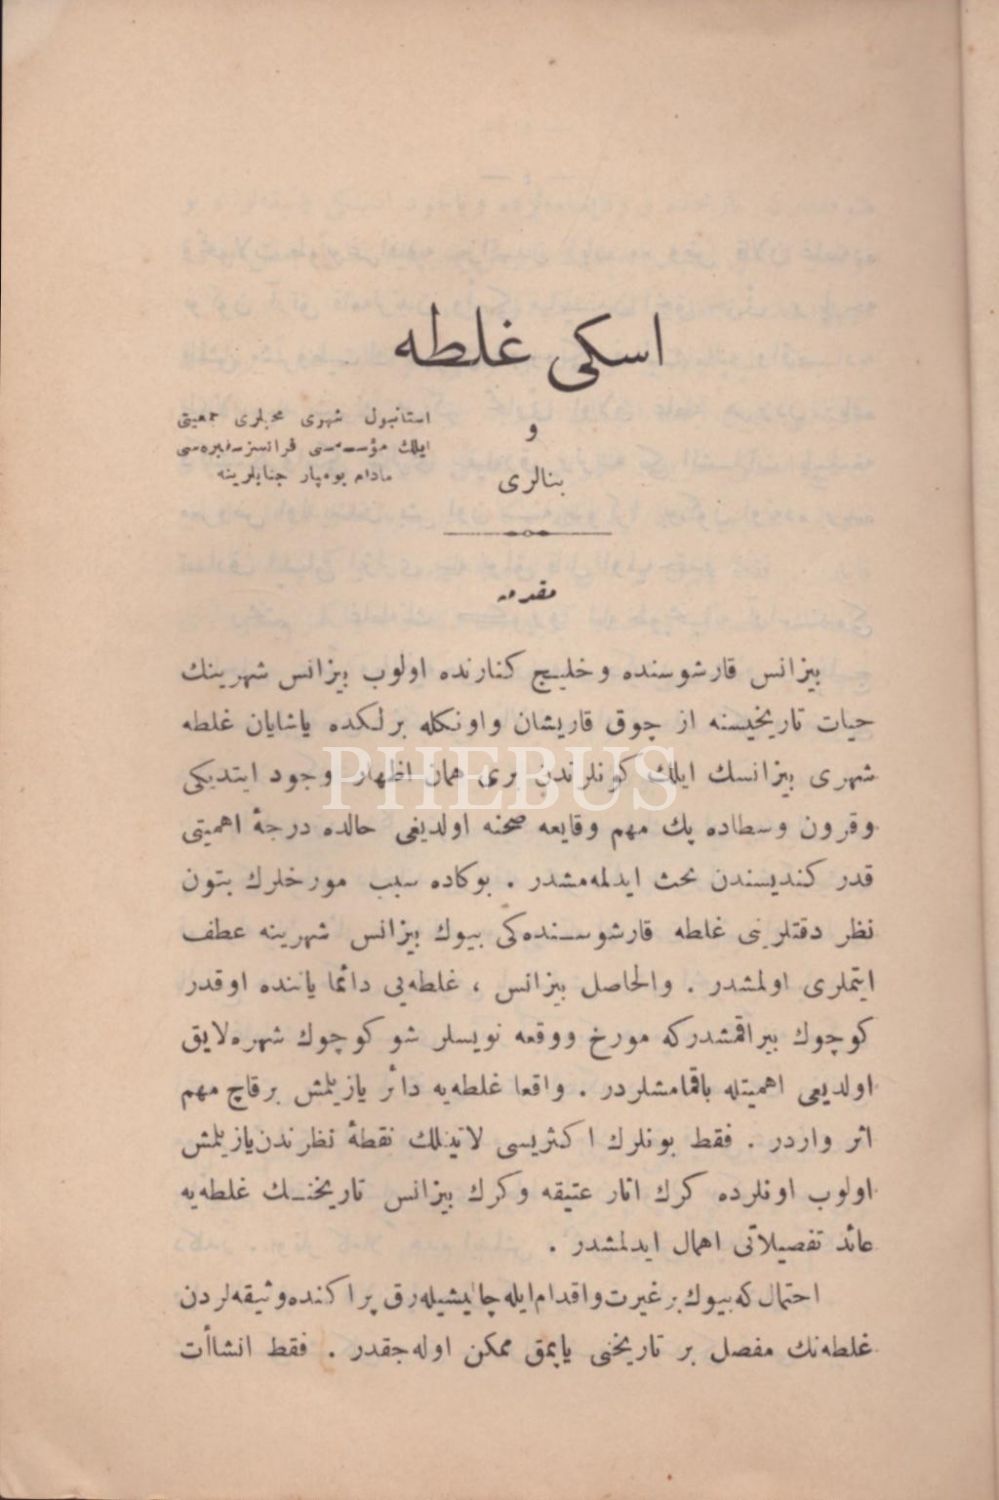 اسكی غلطه
و
بنالری
استانبول شهری محبلری جمعیتی
ایلك مؤسسه‌سی فرانسز سفیره‌سی
مادام بومپار جنابلرینه
مقدمه
بیزانس قارشوسنده و خلیج كنارنده اولوب بیزانس شهرینك
حیات تاریخیسنه از چوق قاریشان واونكله برلكده یاشایان غلطه
شهری بیزانسك ایلك كونلرندن بری همان اظهار وجود ایتدیكی
وقرون وسطاده پك مهم وقایعه صحنه اولدیغی حالده درجۀ اهمیتی
قدر كندیسندن بحث ایدلمه‌مشدر . بوكاده سبب مورخلرك بتون
نظر دقتلرینی غلطه قارشوسنده‌كی بیوك بیزانس شهرینه عطف
ایتملری اولمشدر . والحاصل بیزانس ، غلطه‌یی دائما یاننده اوقدر
كوچوك بیراقمشدركه مورخ ووقعه نویسلر شو كوچوك شهره لایق
اولدیغی اهمیتله باقمامشلردر . واقعا غلطه‌یه دائر یازیلمش برقاچ مهم
اثر واردر . فقط بونلرك اكثریسی لاتینلك نقطۀ نظرندن یازیلمش
اولوب اونلرده كرك اثار عتیقه وكرك بیزانس تاریخنك غلطه‌یه
عائد تفصیلاتی اهمال ایدلمشدر .
احتمال كه بیوك بر غیرت واقدام ایله چالیشیله‌رق پراكنده وثیقه‌لردن
غلطه‌نك مفصل بر تاریخنی یاپمق ممكن اوله‌جقدر . فقط انشاأت
PHEBUS